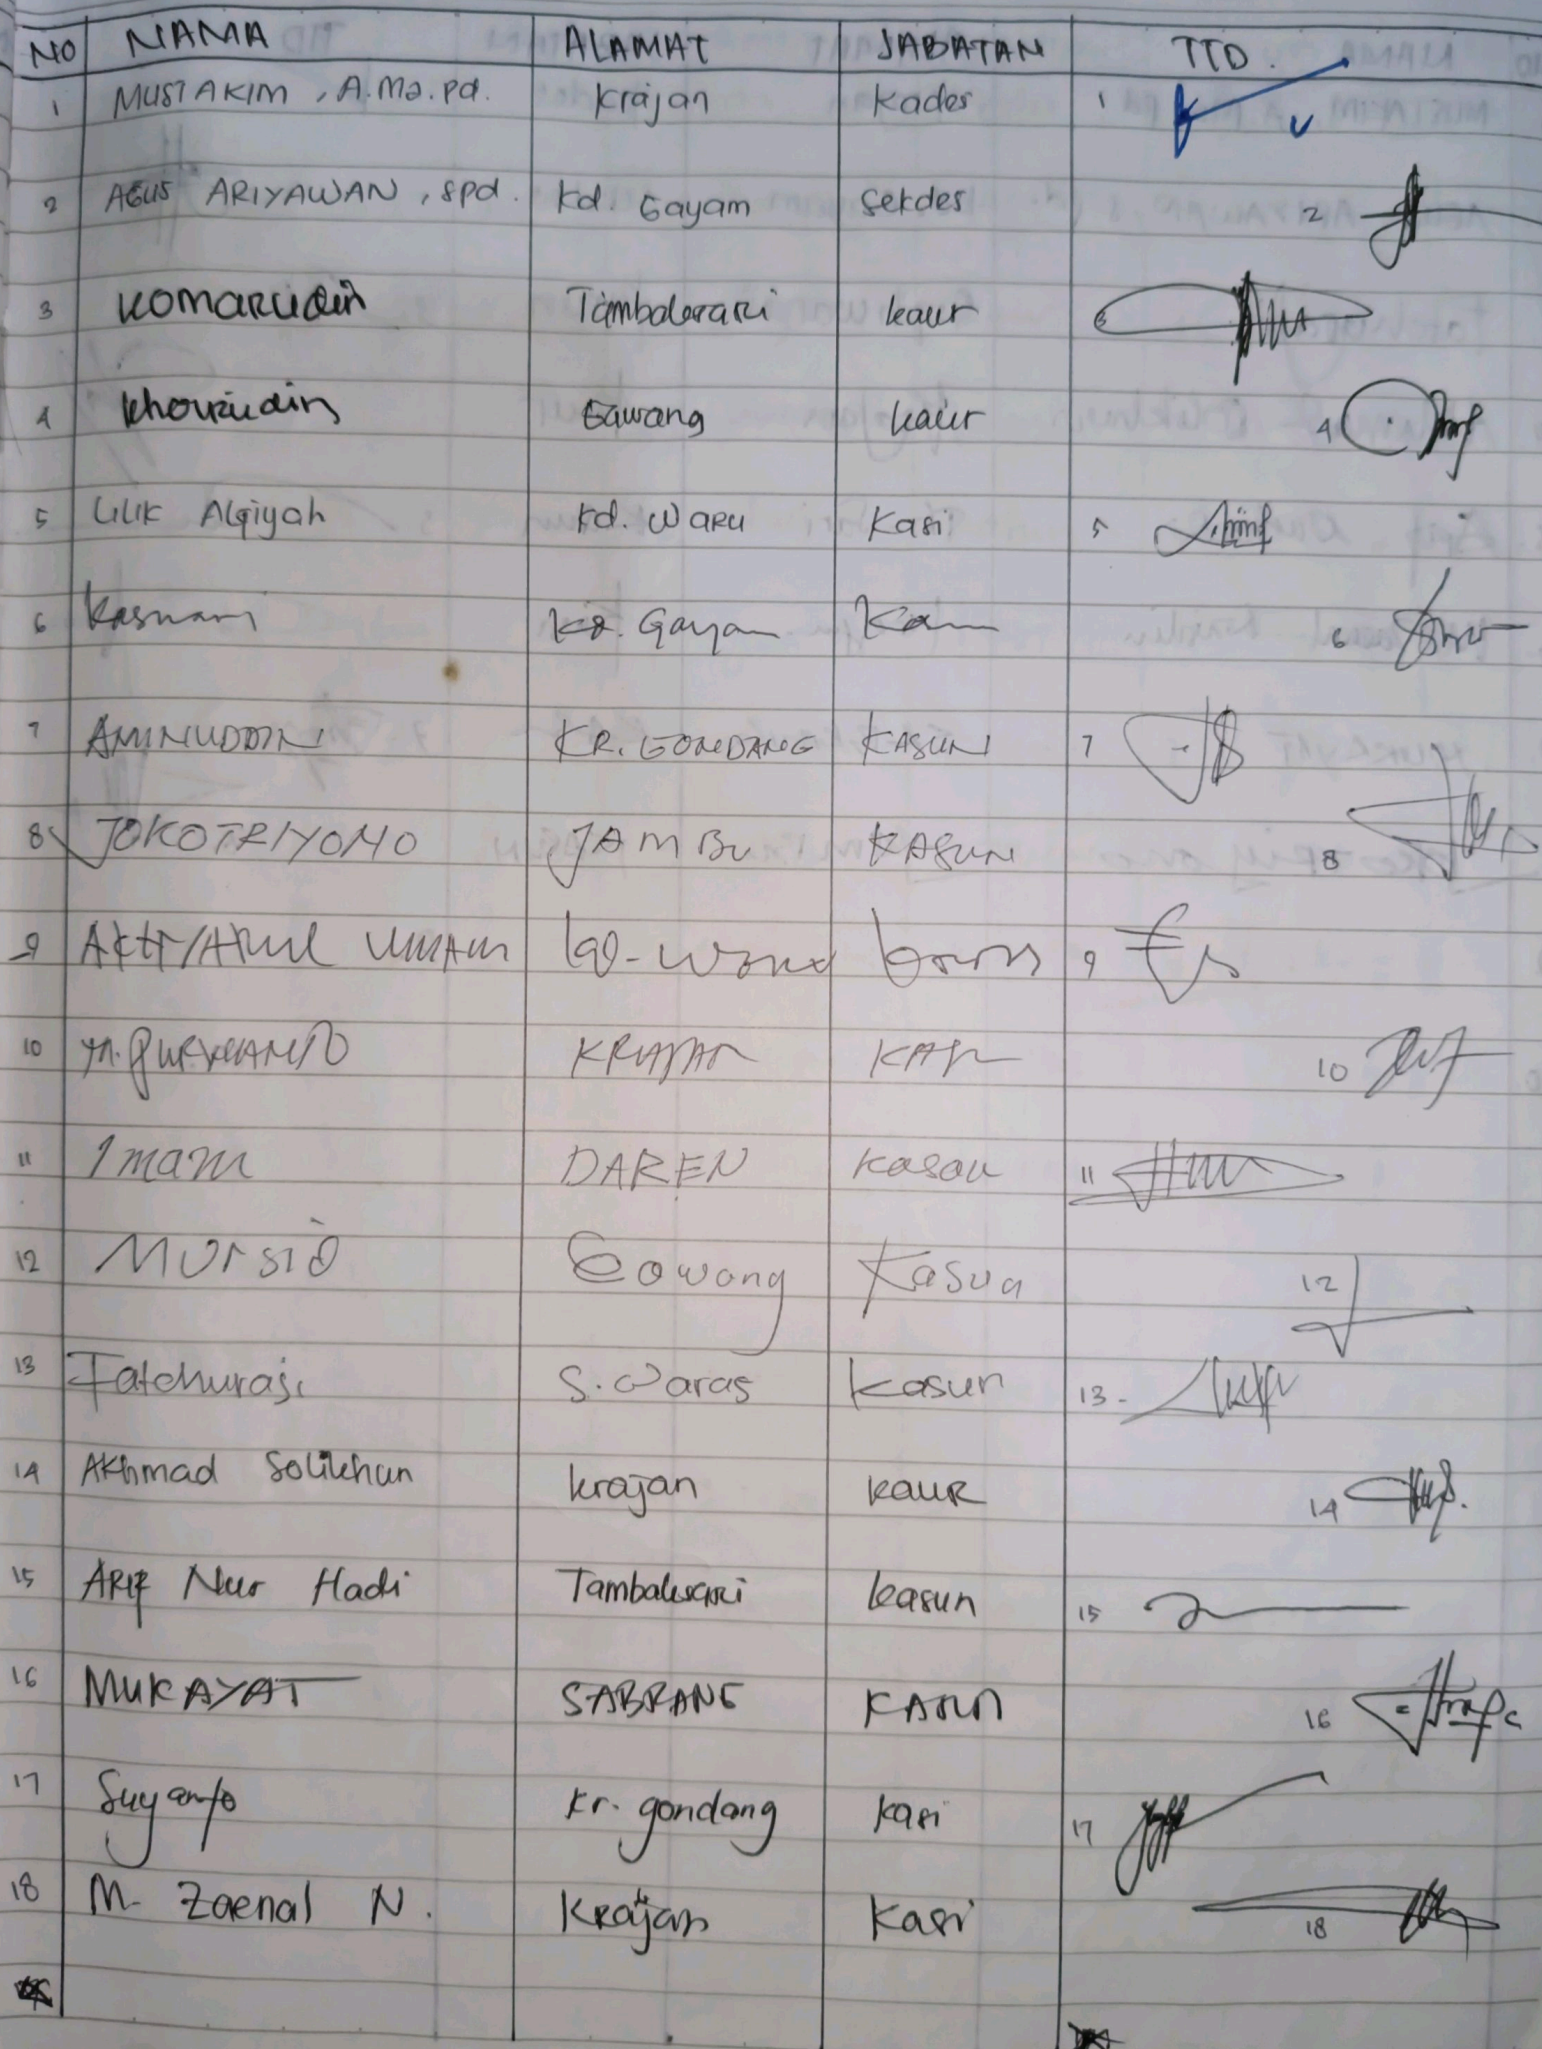 NO NAMA ALAMAT JABATAN TTD.
1 MUSTAKIM, A.Ma.Pd. Krajan Kades 1
2 AGUS ARIYAWAN, Spd. Kd. Gayam Sekdes 2
3 Komarudin Tambaksari kaur 3
4 Khoirudin Gawang kaur 4
5 Lilik Alqiyah Kd. Waru Kasi 5
6 Kasnari Kd. Gayam 6
7 AMINUDDIN KR. GONDANG KASUN 7
8 JOKOTRIYONO JAMBU KASUN 8
9 UMAM 9
10 M. PURWANTO KRAJAN 10
11 Imam DAREN Kasun 11
12 Mursid Gowang Kasun 12
13 Fatchurasi S. Waras Kasun 13-
14 Akhmad Solikhun krajan kaur 14
15 Arif Nur Hadi Tambaksari kasun 15
16 MUKAYAT SABRANG KASUN 16
17 Suyanto Kr. gondang Kasi 17
18 M. Zaenal N. Krajan Kasi 18